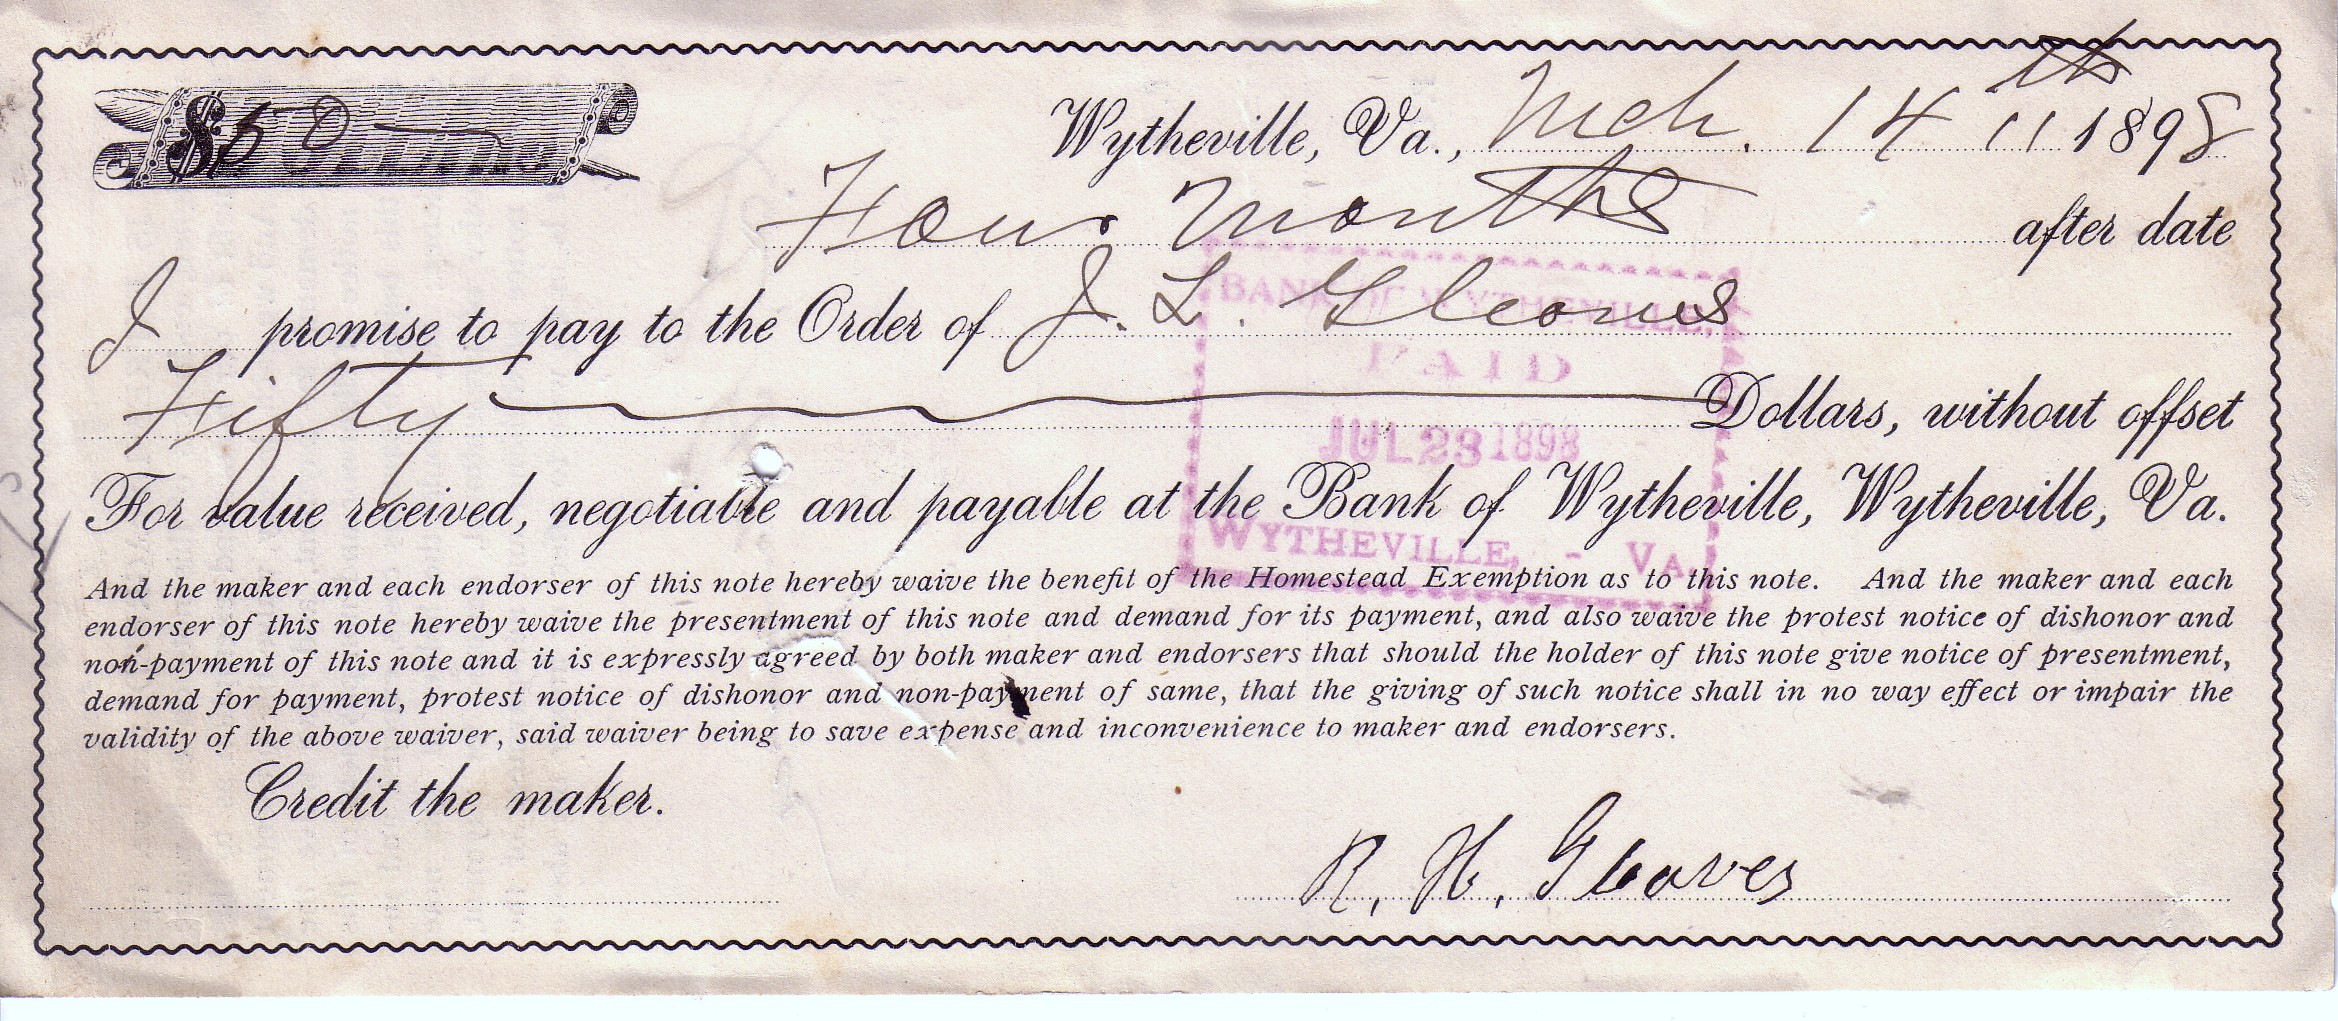 $50
Wytheville, Va., Mch. 14th 1898
Four months after date
I promise to pay to the Order of J. L. Gleaves
Fifty Dollars, without offset
For value received, negotiable and payable at the Bank of Wytheville, Wytheville, Va.
And the maker and each endorser of this note hereby waive the benefit of the Homestead Exemption as to this note. And the maker and each
endorser of this note hereby waive the presentment of this note and demand for its payment, and also waive the protest notice of dishonor and
non-payment of this note and it is expressly agreed by both maker and endorsers that should the holder of this note give notice of presentment,
demand for payment, protest notice of dishonor and non-payment of same, that the giving of such notice shall in no way effect or impair the
validity of the above waiver, said waiver being to save expense and inconvenience to maker and endorsers.
Credit the maker.
R. H. Gleaves
BANK OF WYTHEVILLE,
PAID
JUL 23 1898
WYTHEVILLE, - VA.